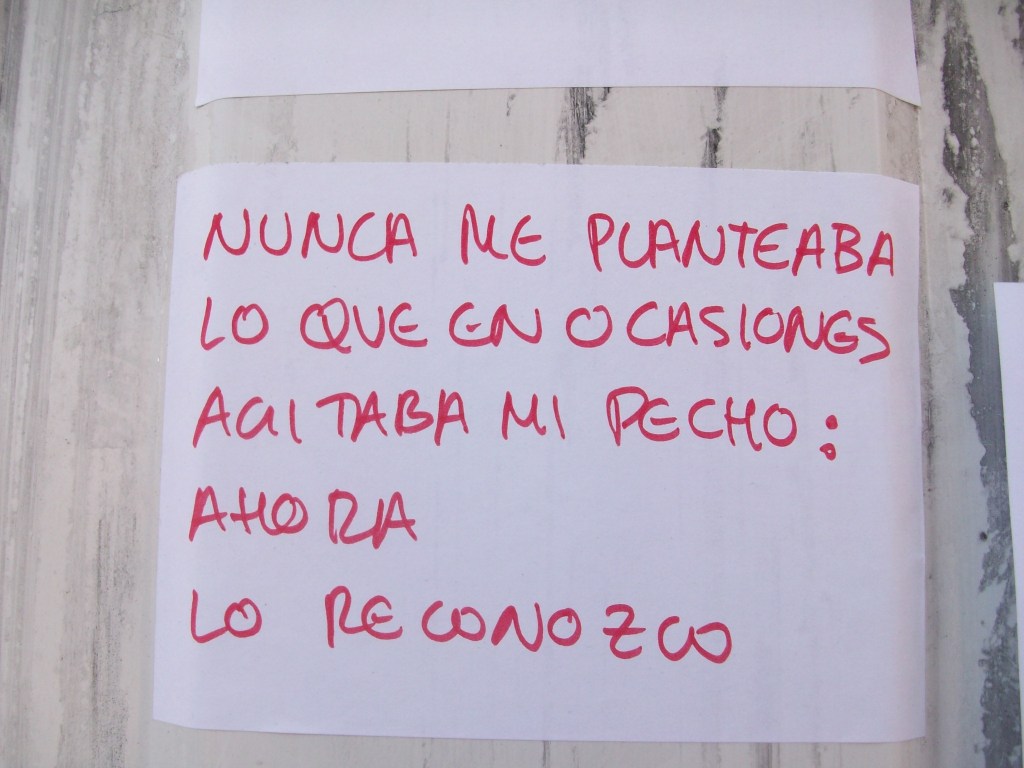 NUNCA ME PLANTEABA
LO QUE EN OCASIONES
AGITABA MI PECHO:
AHORA
LO RECONOZCO